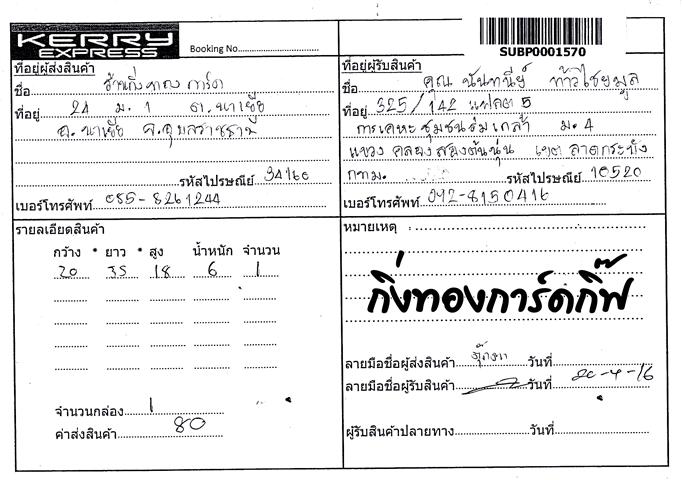 KERRY
EXPRESS
Booking No.
SUBP0001570
ที่อยู่ผู้ส่งสินค้า
ชื่อ ร้านกิ่งทองการ์ด
ที่อยู่ 24 ม. 1 ต.นาเยีย
อ.นาเยีย จ.อุบลราชธานี
รหัสไปรษณีย์ 34160
เบอร์โทรศัพท์ 085-8261244
ที่อยู่ผู้รับสินค้า
ชื่อ คุณ นันทนีย์ ท้าวไชยมูล
ที่อยู่ 325/142 แฟลต 5
การเคหะชุมชนร่มเกล้า ม.4
แขวง คลองสองต้นนุ่น เขต ลาดกระบัง
กทม. รหัสไปรษณีย์ 10520
เบอร์โทรศัพท์ 092-8150416
รายละเอียดสินค้า
กว้าง * ยาว * สูง น้ำหนัก จำนวน
20 35 18 6 1
จำนวนกล่อง 1
ค่าส่งสินค้า 80
หมายเหตุ :
กิ่งทองการ์ดกิ๊ฟ
ลายมือชื่อผู้ส่งสินค้า วันที่
ลายมือชื่อผู้รับสินค้า วันที่ 20-4-16
ผู้รับสินค้าปลายทาง วันที่